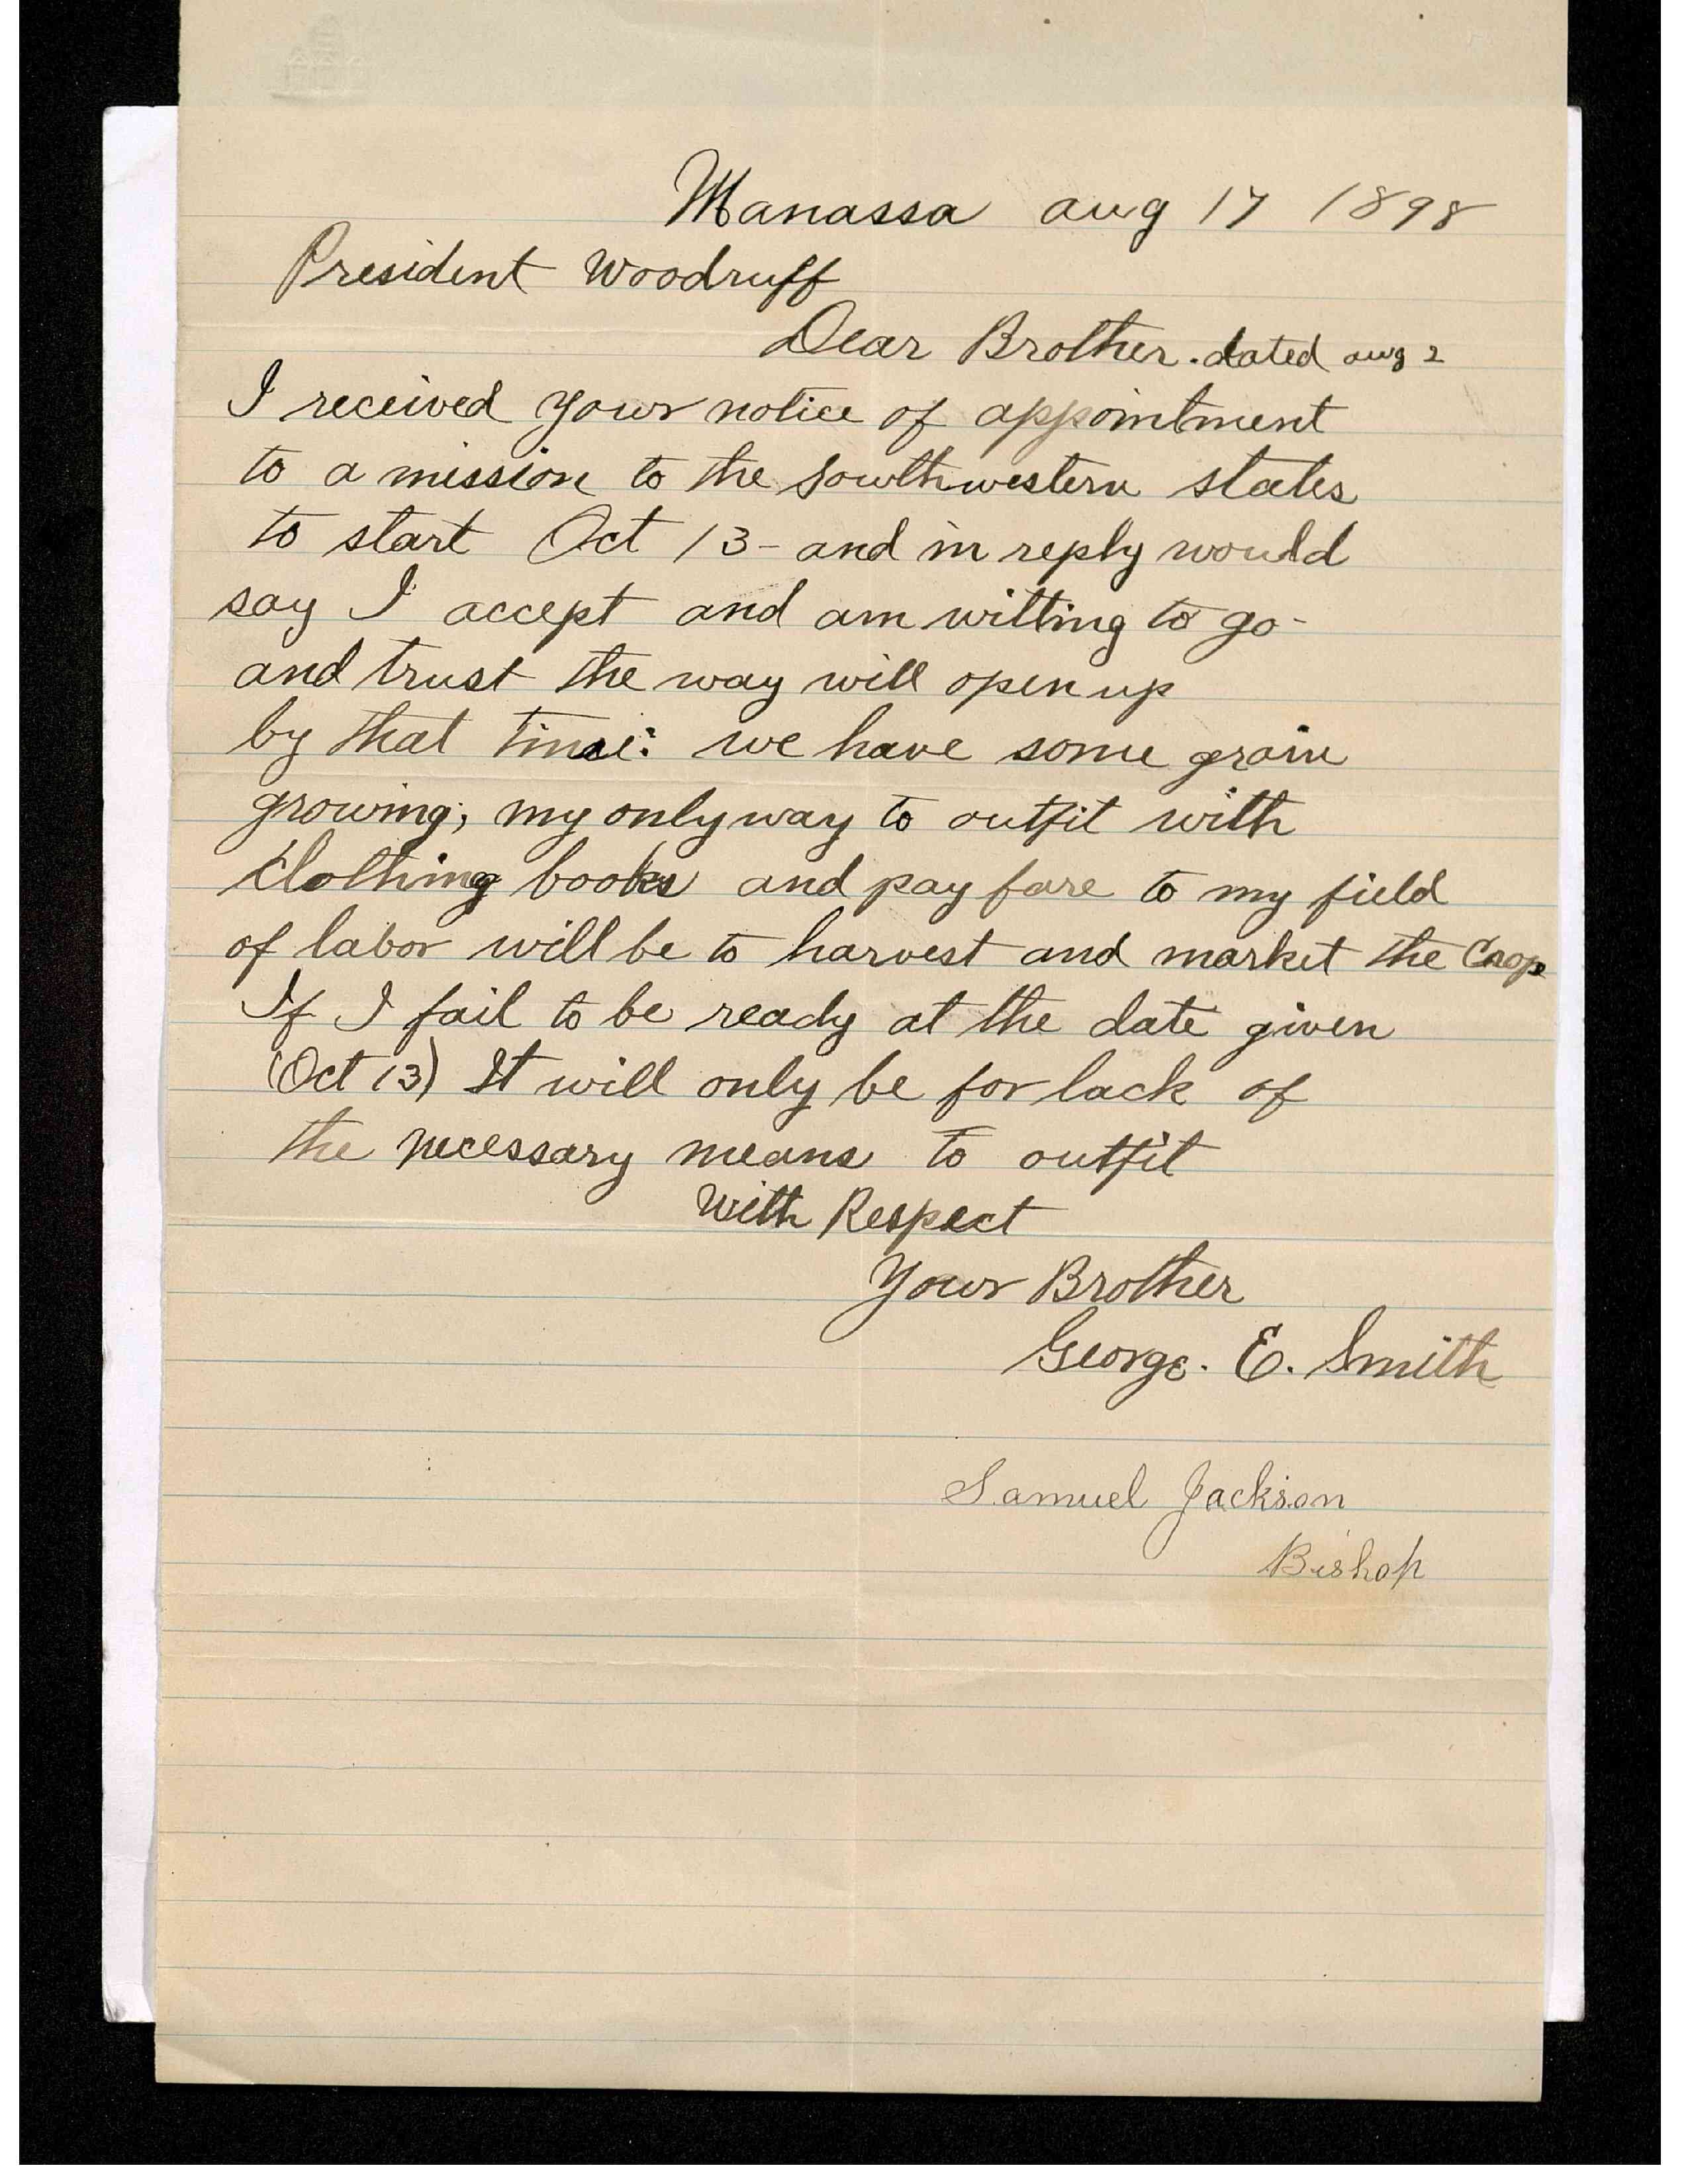 Manassa aug 17 1898
President Woodruff
Dear Brother. dated aug 2
I received your notice of appointment
to a mission to the southwestern states
to start Oct 13 - and in reply would
say I accept and am willing to go -
and trust the way will open up
by that time: we have some grain
growing; my only way to outfit with
clothing books and pay fare to my field
of labor will be to harvest and market the Crop
If I fail to be ready at the date given
(Oct 13) It will only be for lack of
the necessary means to outfit
With Respect
Your Brother
George. E. Smith
Samuel Jackson
Bishop